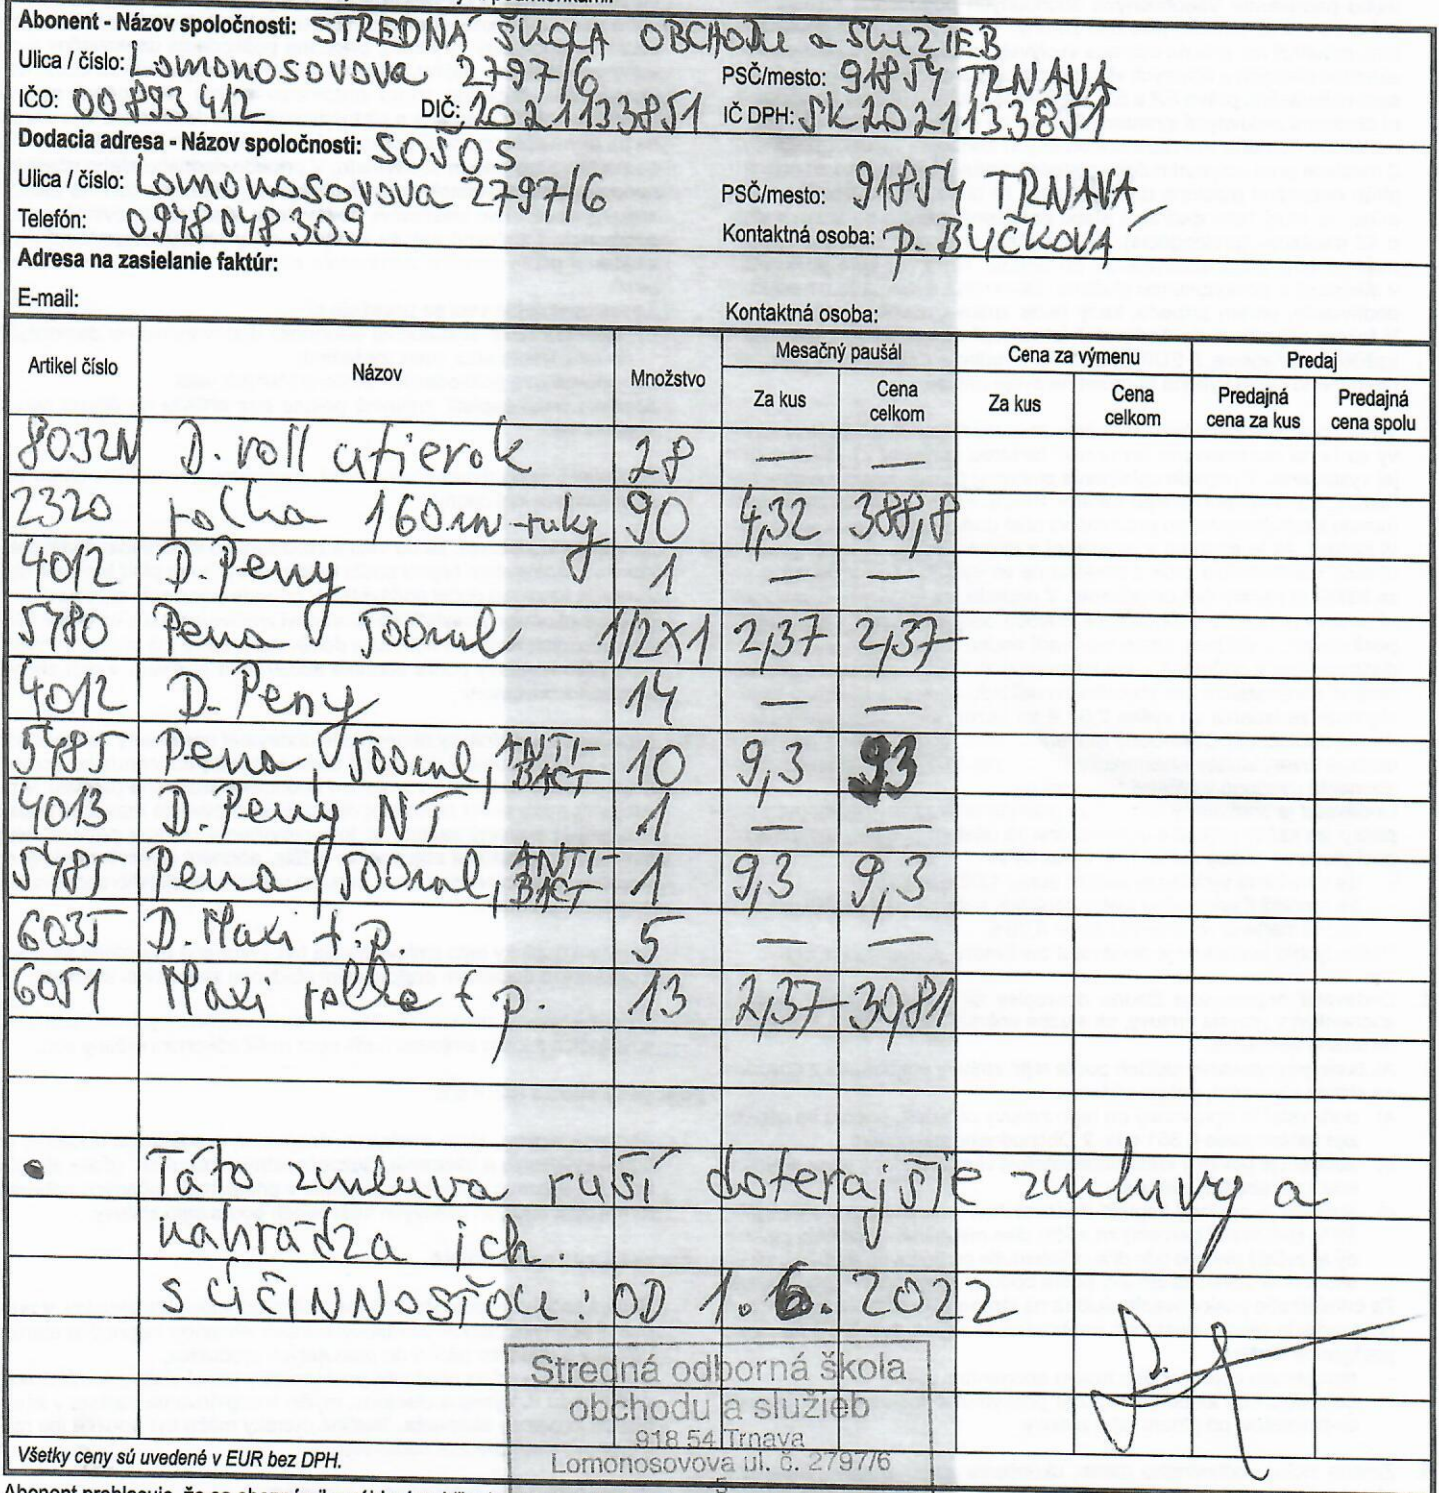 Abonent - Názov spoločnosti: STREDNÁ ŠKOLA OBCHODU a SLUŽIEB
Ulica / číslo: Lomonosovova 2797/6 PSČ/mesto: 91854 TRNAVA
IČO: 00893412 DIČ: 2021133851 IČ DPH: SK2021133851
Dodacia adresa - Názov spoločnosti: SOŠOS
Ulica / číslo: Lomonosovova 2797/6 PSČ/mesto: 91854 TRNAVA
Telefón: 0948048309 Kontaktná osoba: p. BUČKOVÁ
Adresa na zasielanie faktúr:
E-mail: Kontaktná osoba:
Artikel číslo Názov Množstvo Mesačný paušál Cena za výmenu Predaj
Za kus Cena celkom Za kus Cena celkom Predajná cena za kus Predajná cena spolu
8032N D. roll utierok 28 — —
2320 rolka 160m-ruky 90 4,32 388,8
4012 D. Peny 1 — —
5480 Pena 500ml 1/2x1 2,37 2,37
4012 D. Peny 14 — —
5485 Pena, 500ml, ANTI-BACT 10 9,3 93
4013 D. Peny NT 1 — —
5485 Pena 500ml, ANTI-BACT 1 9,3 9,3
6035 D. Maxi t.p. 5 — —
6051 Maxi rolka t.p. 13 2,37 30,81
• Táto zmluva ruší doterajšie zmluvy a
nahrádza ich.
S ÚČINNOSŤOU: OD 1. 6. 2022
Stredná odborná škola
obchodu a služieb
918 54 Trnava
Lomonosovova ul. č. 2797/6
Všetky ceny sú uvedené v EUR bez DPH.